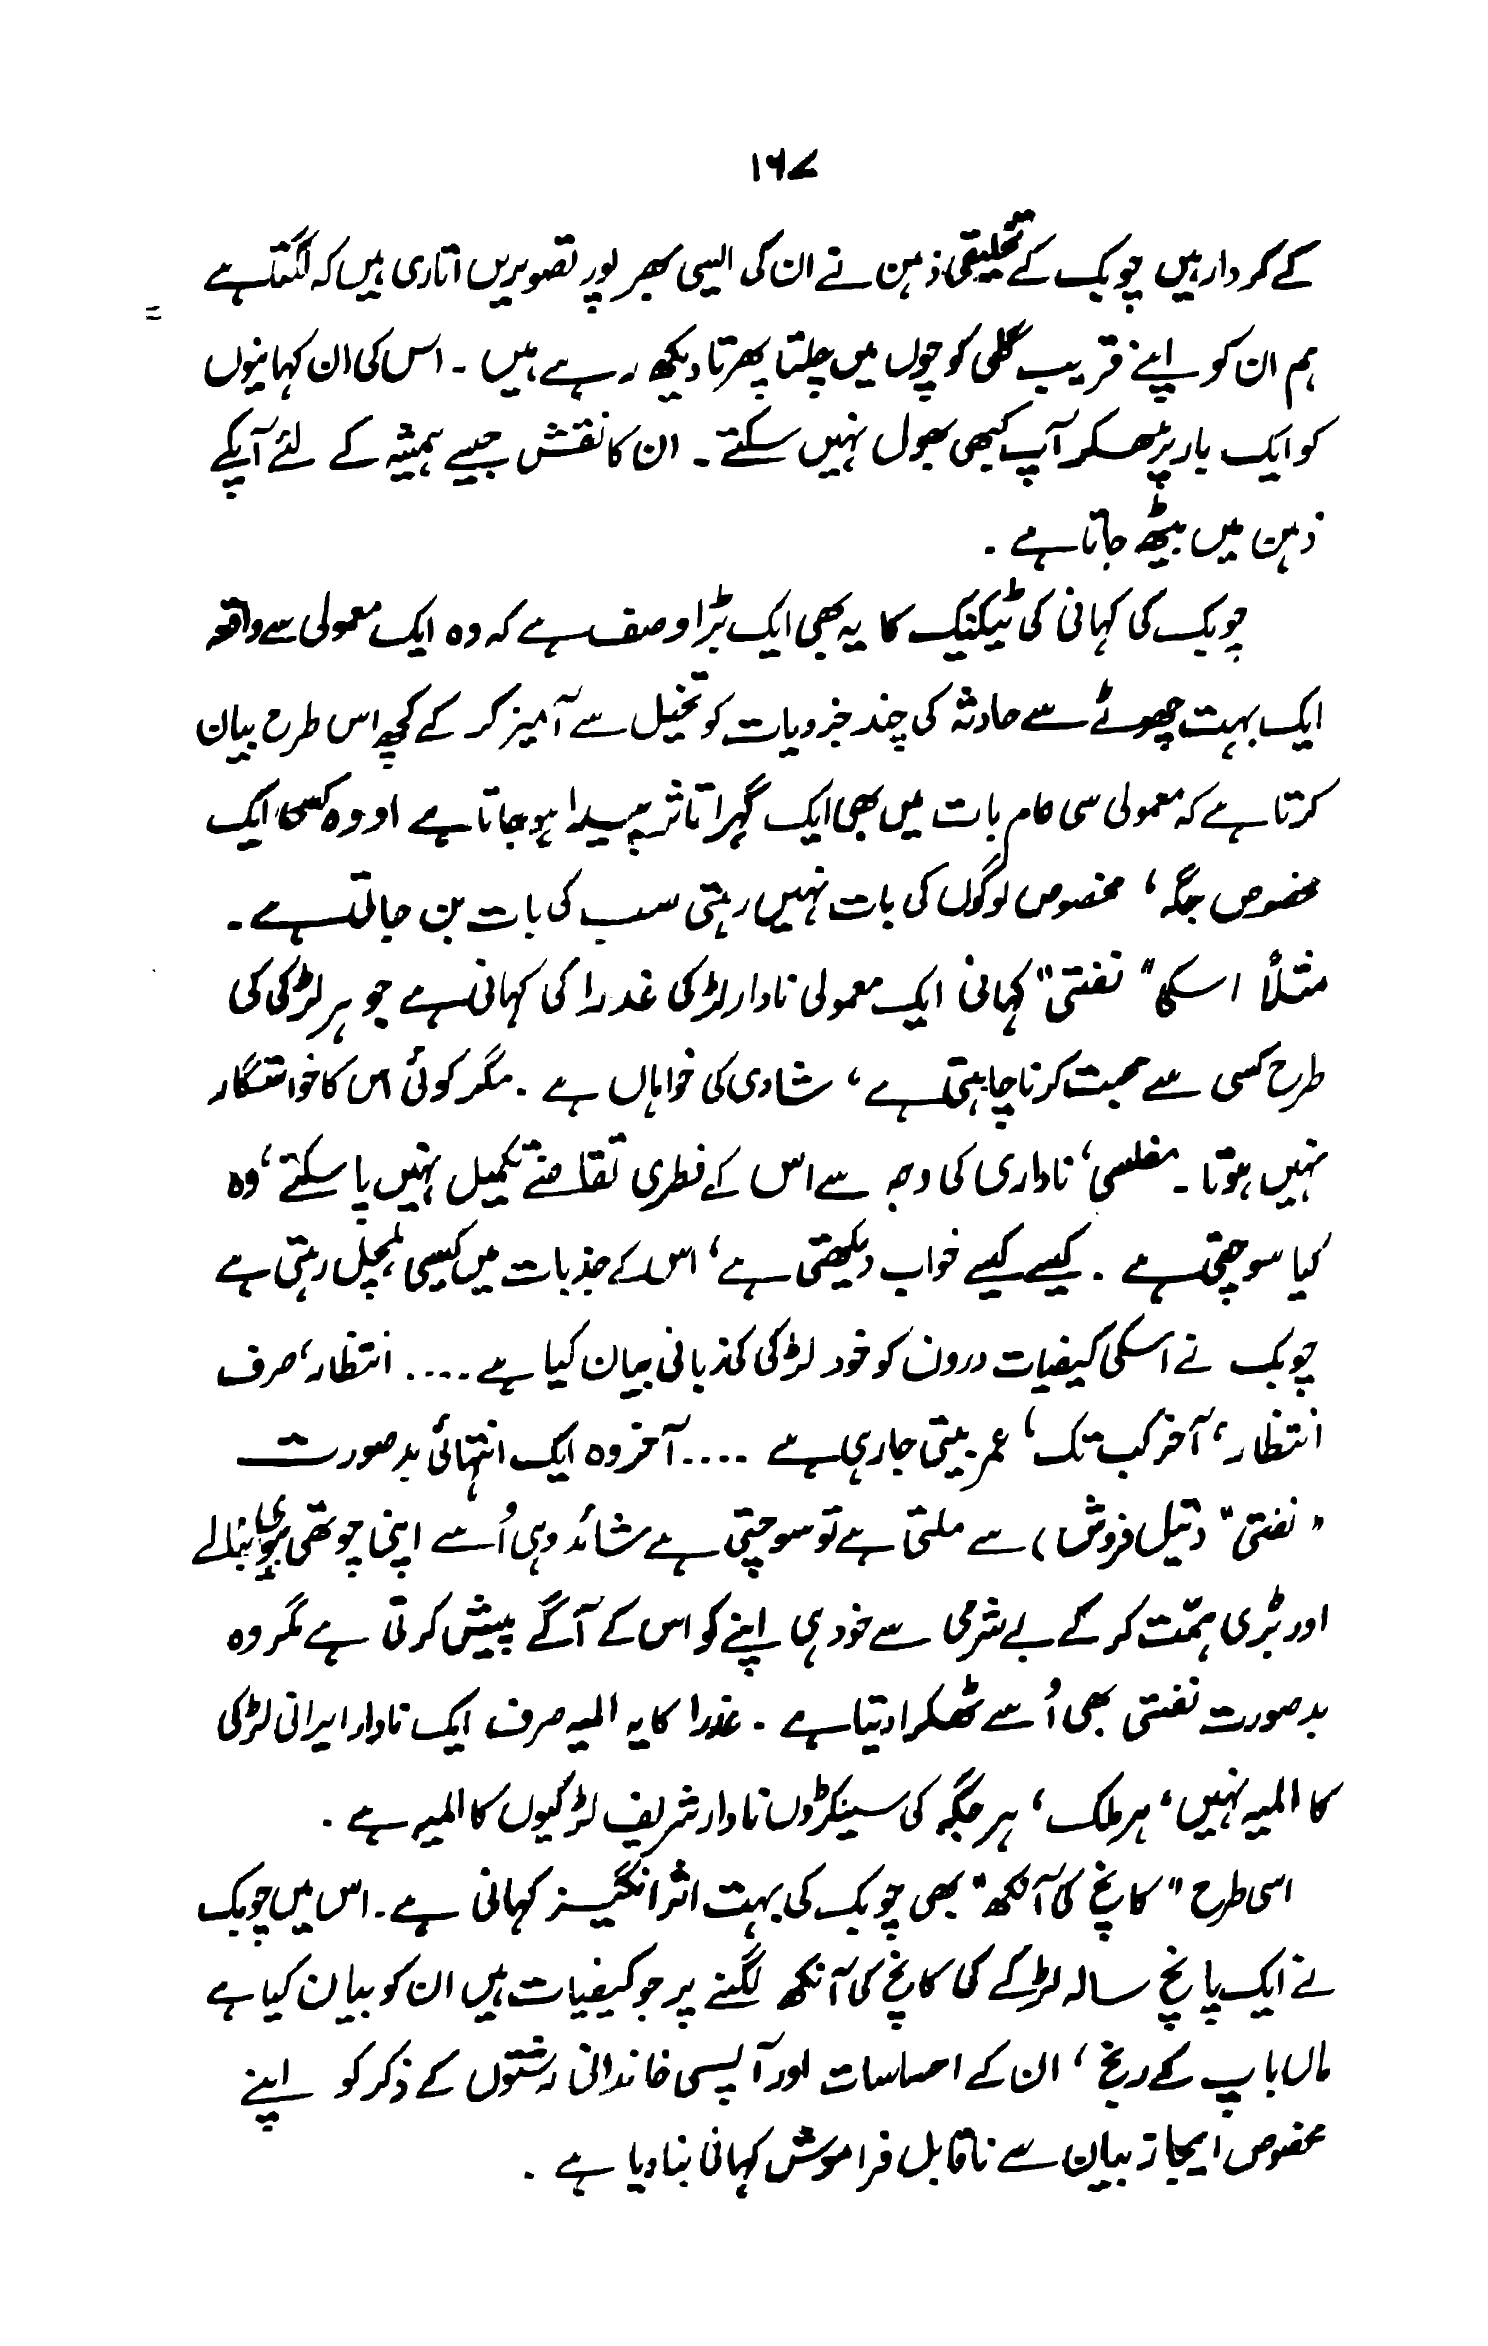 ۱۶۷
کے کردار ہیں چوبک کے تخلیقی ذہن نے ان کی ایسی بھر پور تصویریں اتاری ہیں کہ لگتا ہے
ہم ان کو اپنے قریب گلی کوچوں میں چلتا پھرتا دیکھ رہے ہیں ۔ اس کی ان کہانیوں
کو ایک بار پڑھکر آپ کبھی بھول نہیں سکتے ۔ ان کا نقش جیسے ہمیشہ کے لئے آپکے
ذہن میں بیٹھ جاتا ہے ۔
چوبک کی کہانی کی ٹیکنیک کا یہ بھی ایک بڑا وصف ہے کہ وہ ایک معمولی سے واقعہ
ایک بہت چھوٹے سے حادثہ کی چند جزویات کو تخیل سے آمیز کر کے کچھ اس طرح بیان
کرتا ہے کہ معمولی سی عام بات میں بھی ایک گہرا تاثر پیدا ہو جاتا ہے او وہ کسی ایک
مخصوص جگہ ، مخصوص لوگوں کی بات نہیں رہتی سب کی بات بن جاتی ہے ۔
مثلاً اسکی " نفتی " کہانی ایک معمولی نادار لڑکی عذرا کی کہانی ہے جو ہر لڑکی کی
طرح کسی سے محبت کرنا چاہتی ہے ، شادی کی خواہاں ہے ۔ مگر کوئی اس کا خواستگار
نہیں ہوتا ۔ مفلسی ، ناداری کی وجہ سے اس کے فطری تقاضے تکمیل نہیں پا سکتے ، وہ
کیا سوچتی ہے ۔ کیسے کیسے خواب دیکھتی ہے ، اس کے جذبات میں کیسی ہلچل رہتی ہے
چوبک نے اسکی کیفیات درون کو خود لڑکی کی زبانی بیان کیا ہے .... انتظار ، صرف
انتظار ، آخر کب تک ، عمر بیتی جا رہی ہے .... آخر وہ ایک انتہائی بدصورت
" نفتی " ( تیل فروش ) سے ملتی ہے تو سوچتی ہے شائد وہی اُسے اپنی چوتھی بیوی بنا لے
اور بڑی ہمّت کر کے بے شرمی سے خود ہی اپنے کو اس کے آگے پیش کرتی ہے مگر وہ
بدصورت نفتی بھی اُسے ٹھکرا دیتا ہے ۔ عذرا کا یہ المیہ صرف ایک نادار ایرانی لڑکی
کا المیہ نہیں ، ہر ملک ، ہر جگہ کی سینکڑوں نادار شریف لڑکیوں کا المیہ ہے ۔
اسی طرح " کانچ کی آنکھ " بھی چوبک کی بہت اثر انگیز کہانی ہے ۔ اس میں چوبک
نے ایک پانچ سالہ لڑکے کی کانچ کی آنکھ لگنے پر جو کیفیات ہیں ان کو بیان کیا ہے
ماں باپ کے رنج ، ان کے احساسات اور آپسی خاندانی رشتوں کے ذکر کو اپنے
مخصوص ایجاز بیان سے ناقابل فراموش کہانی بنا دیا ہے ۔